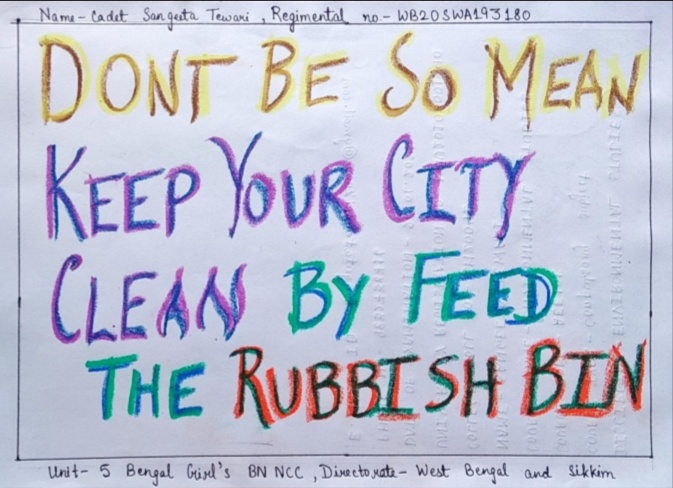 Name- Cadet Sangeeta Tewari, Regimental no.- WB20SWA193180
DONT BE SO MEAN
KEEP YOUR CITY
CLEAN BY FEED
THE RUBBISH BIN
Unit- 5 Bengal Girl's BN NCC, Directorate- West Bengal and Sikkim